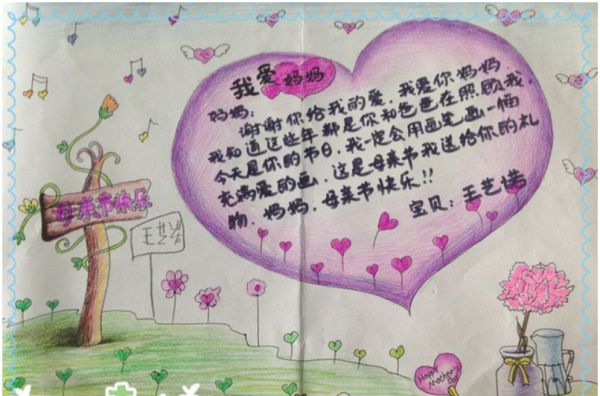 我爱妈妈
妈妈:
谢谢你给我的爱,我爱你妈妈
我知道这些年都是你和爸爸在照顾我,
今天是你的节日,我一定会用画笔画一幅
充满爱的画,这是母亲节我送给你的礼
物,妈妈,母亲节快乐!!
宝贝:王艺诺
母亲节快乐
王艺诺
Happy
Mother's
Day